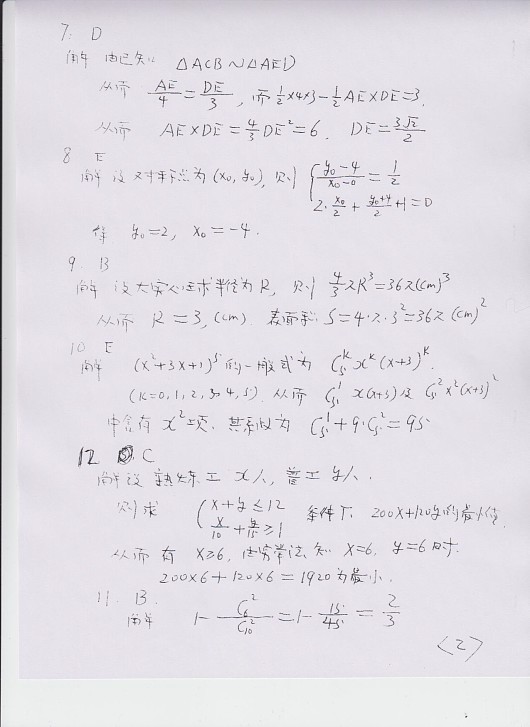 7. D
解 由已知 △ACB∽△AED
从而 AE/4 = DE/3, 而 1/2×4×3 - 1/2 AE×DE = 3.
从而 AE×DE = 4/3 DE² = 6. DE = 3√2/2
8 E
解 设对称点为 (x₀, y₀), 则 { (y₀-4)/(x₀-0) = 1/2
2·x₀/2 + (y₀+4)/2 + 1 = 0
得 y₀=2, x₀=-4.
9 B
解 设大实心球半径为 R, 则 4/3 πR³ = 36π(cm)³
从而 R = 3, (cm) 表面积 S = 4·π·3² = 36π (cm)²
10 E
解 (x²+3x+1)⁵ 的一般式为 C₅ᴷ xᴷ (x+3)ᴷ.
(K=0,1,2,3,4,5). 从而 C₅¹ x(x+3) 及 C₅² x²(x+3)²
中含有 x² 项. 其系数为 C₅¹ + 9·C₅² = 95
12 C
解 设 熟练工 x人, 普工 y人.
则求 { x+y≤12
x/10 + y/15 ≥ 1 条件下, 200x+120y的最小值
从而有 x≥6, 由穷举法知 x=6, y=6 时.
200×6+120×6=1920 为最小.
11. B.
解 1 - C₆²/C₁₀² = 1 - 15/45 = 2/3
<2>